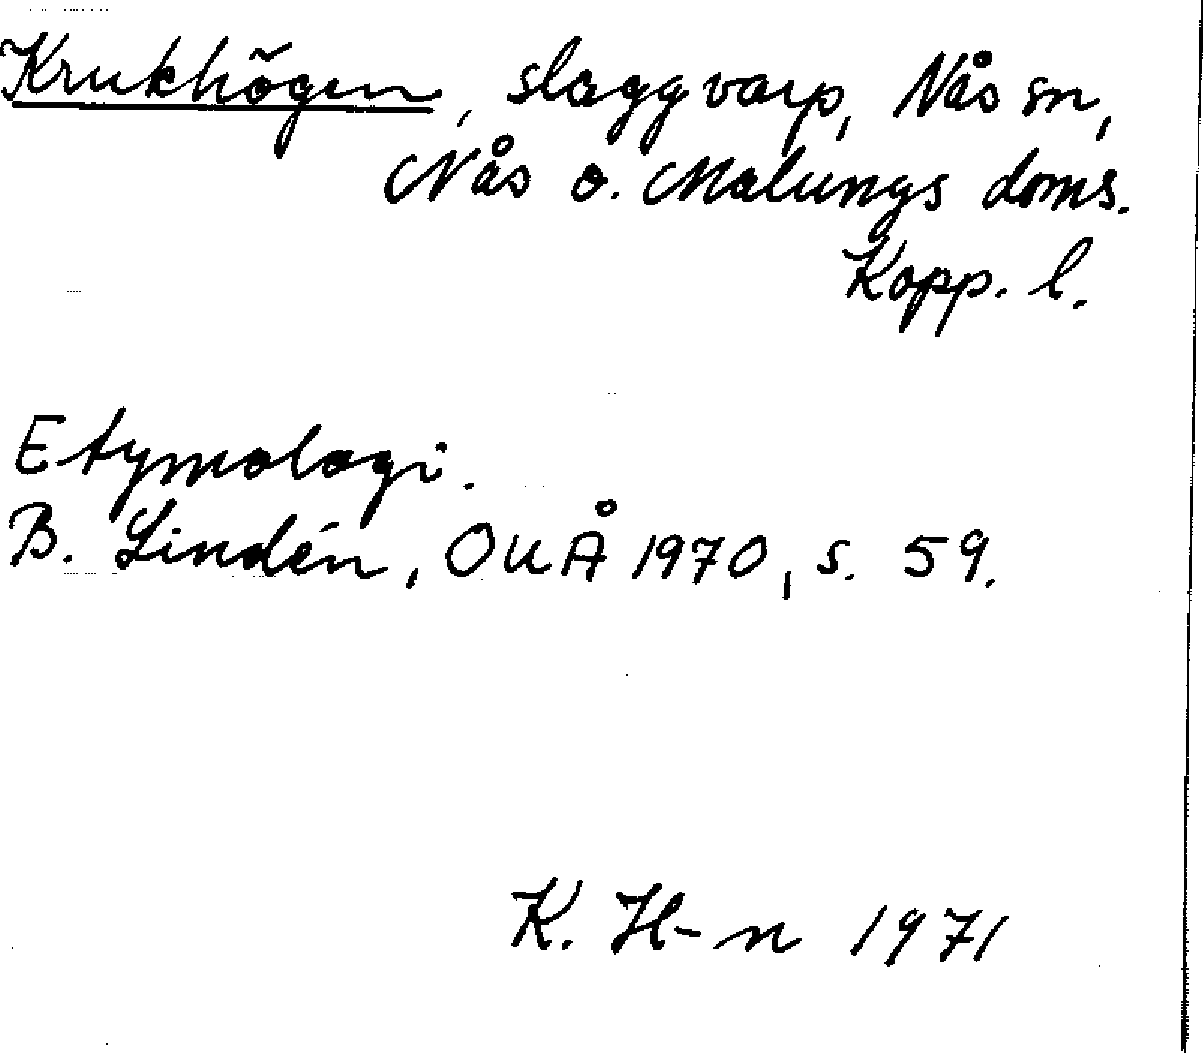 Krukhögen, slaggvarp, Nås sn,
Nås o. Malungs doms.
Kopp. l.
Etymologi.
B. Lindén, OUÅ 1970, s. 59.
K. H-n 1971